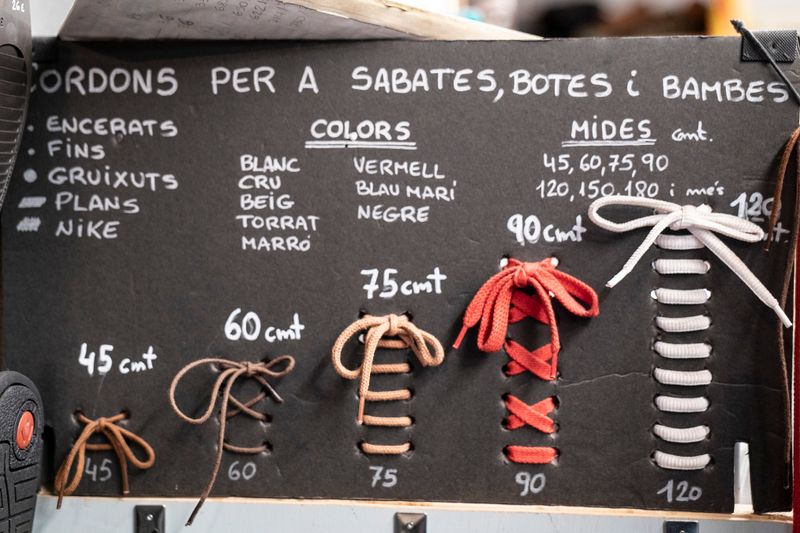 CORDONS PER A SABATES, BOTES i BAMBES
ENCERATS
FINS
GRUIXUTS
PLANS
NIKE
COLORS
BLANC
CRU
BEIG
TORRAT
MARRÓ
VERMELL
BLAU MARÍ
NEGRE
MIDES cmt.
45, 60, 75, 90
120, 150, 180 i més
45 cmt
60 cmt
75 cmt
90 cmt
120
45
60
75
90
120